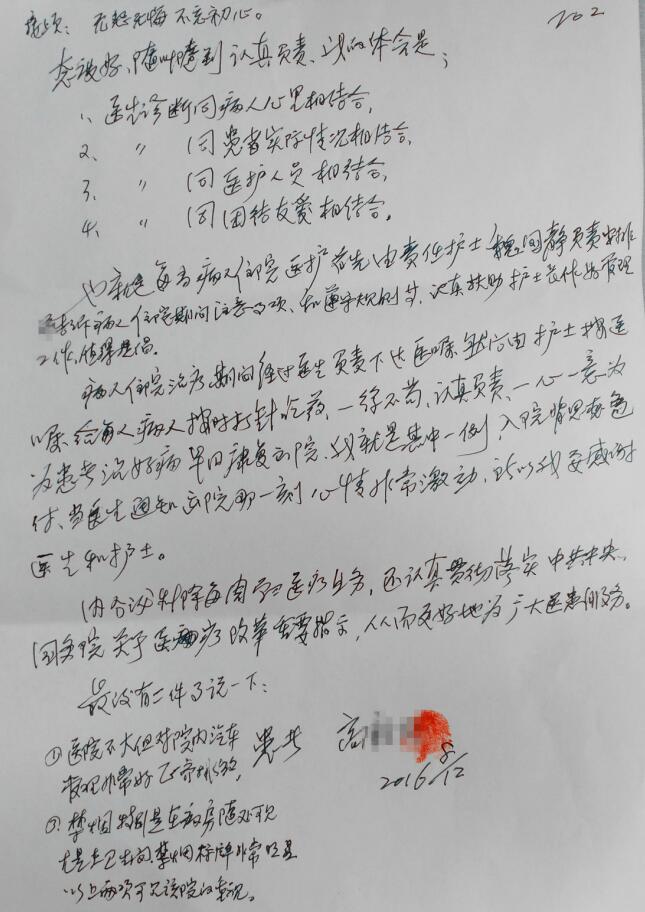 无怨无悔 不忘初心。
202
态度好、随叫随到 认真负责、我的体会是；
1、医生诊断同病人心里相结合，
2、〃 同患者实际情况相结合，
3、〃 同医护人员相结合，
4、〃 同团结友爱相结合。
也就是每当病人住院医护首先由责任护士 负责安排
病人住院期间注意事项、和遵守规则等，认真扶助护士长作好管理
工作，值得提倡。
病人住院治疗期间经过医生负责下达医嘱 然后由护士按医
嘱给每人病人按时打针吃药，一丝不苟、认真负责、一心一意为
为患者治好病早日康复出院、我就是其中一例，入院时思想包
付、当医生通知出院那一刻心情非常激动，所以我要感谢
医生和护士。
内分泌科除每周学习医疗业务，还认真贯彻落实中共中央、
国务院关于医疗改革重要指示，从而更好地为广大医患服务。
最后有二件事说一下：
①医院不大但对院内汽车
管理非常好 正常排放，
患者 高
2016 8/12
②禁烟 特别是在病房随处可见
尤是在卫生间、禁烟标牌非常明显
以上两项可见该院的重视。